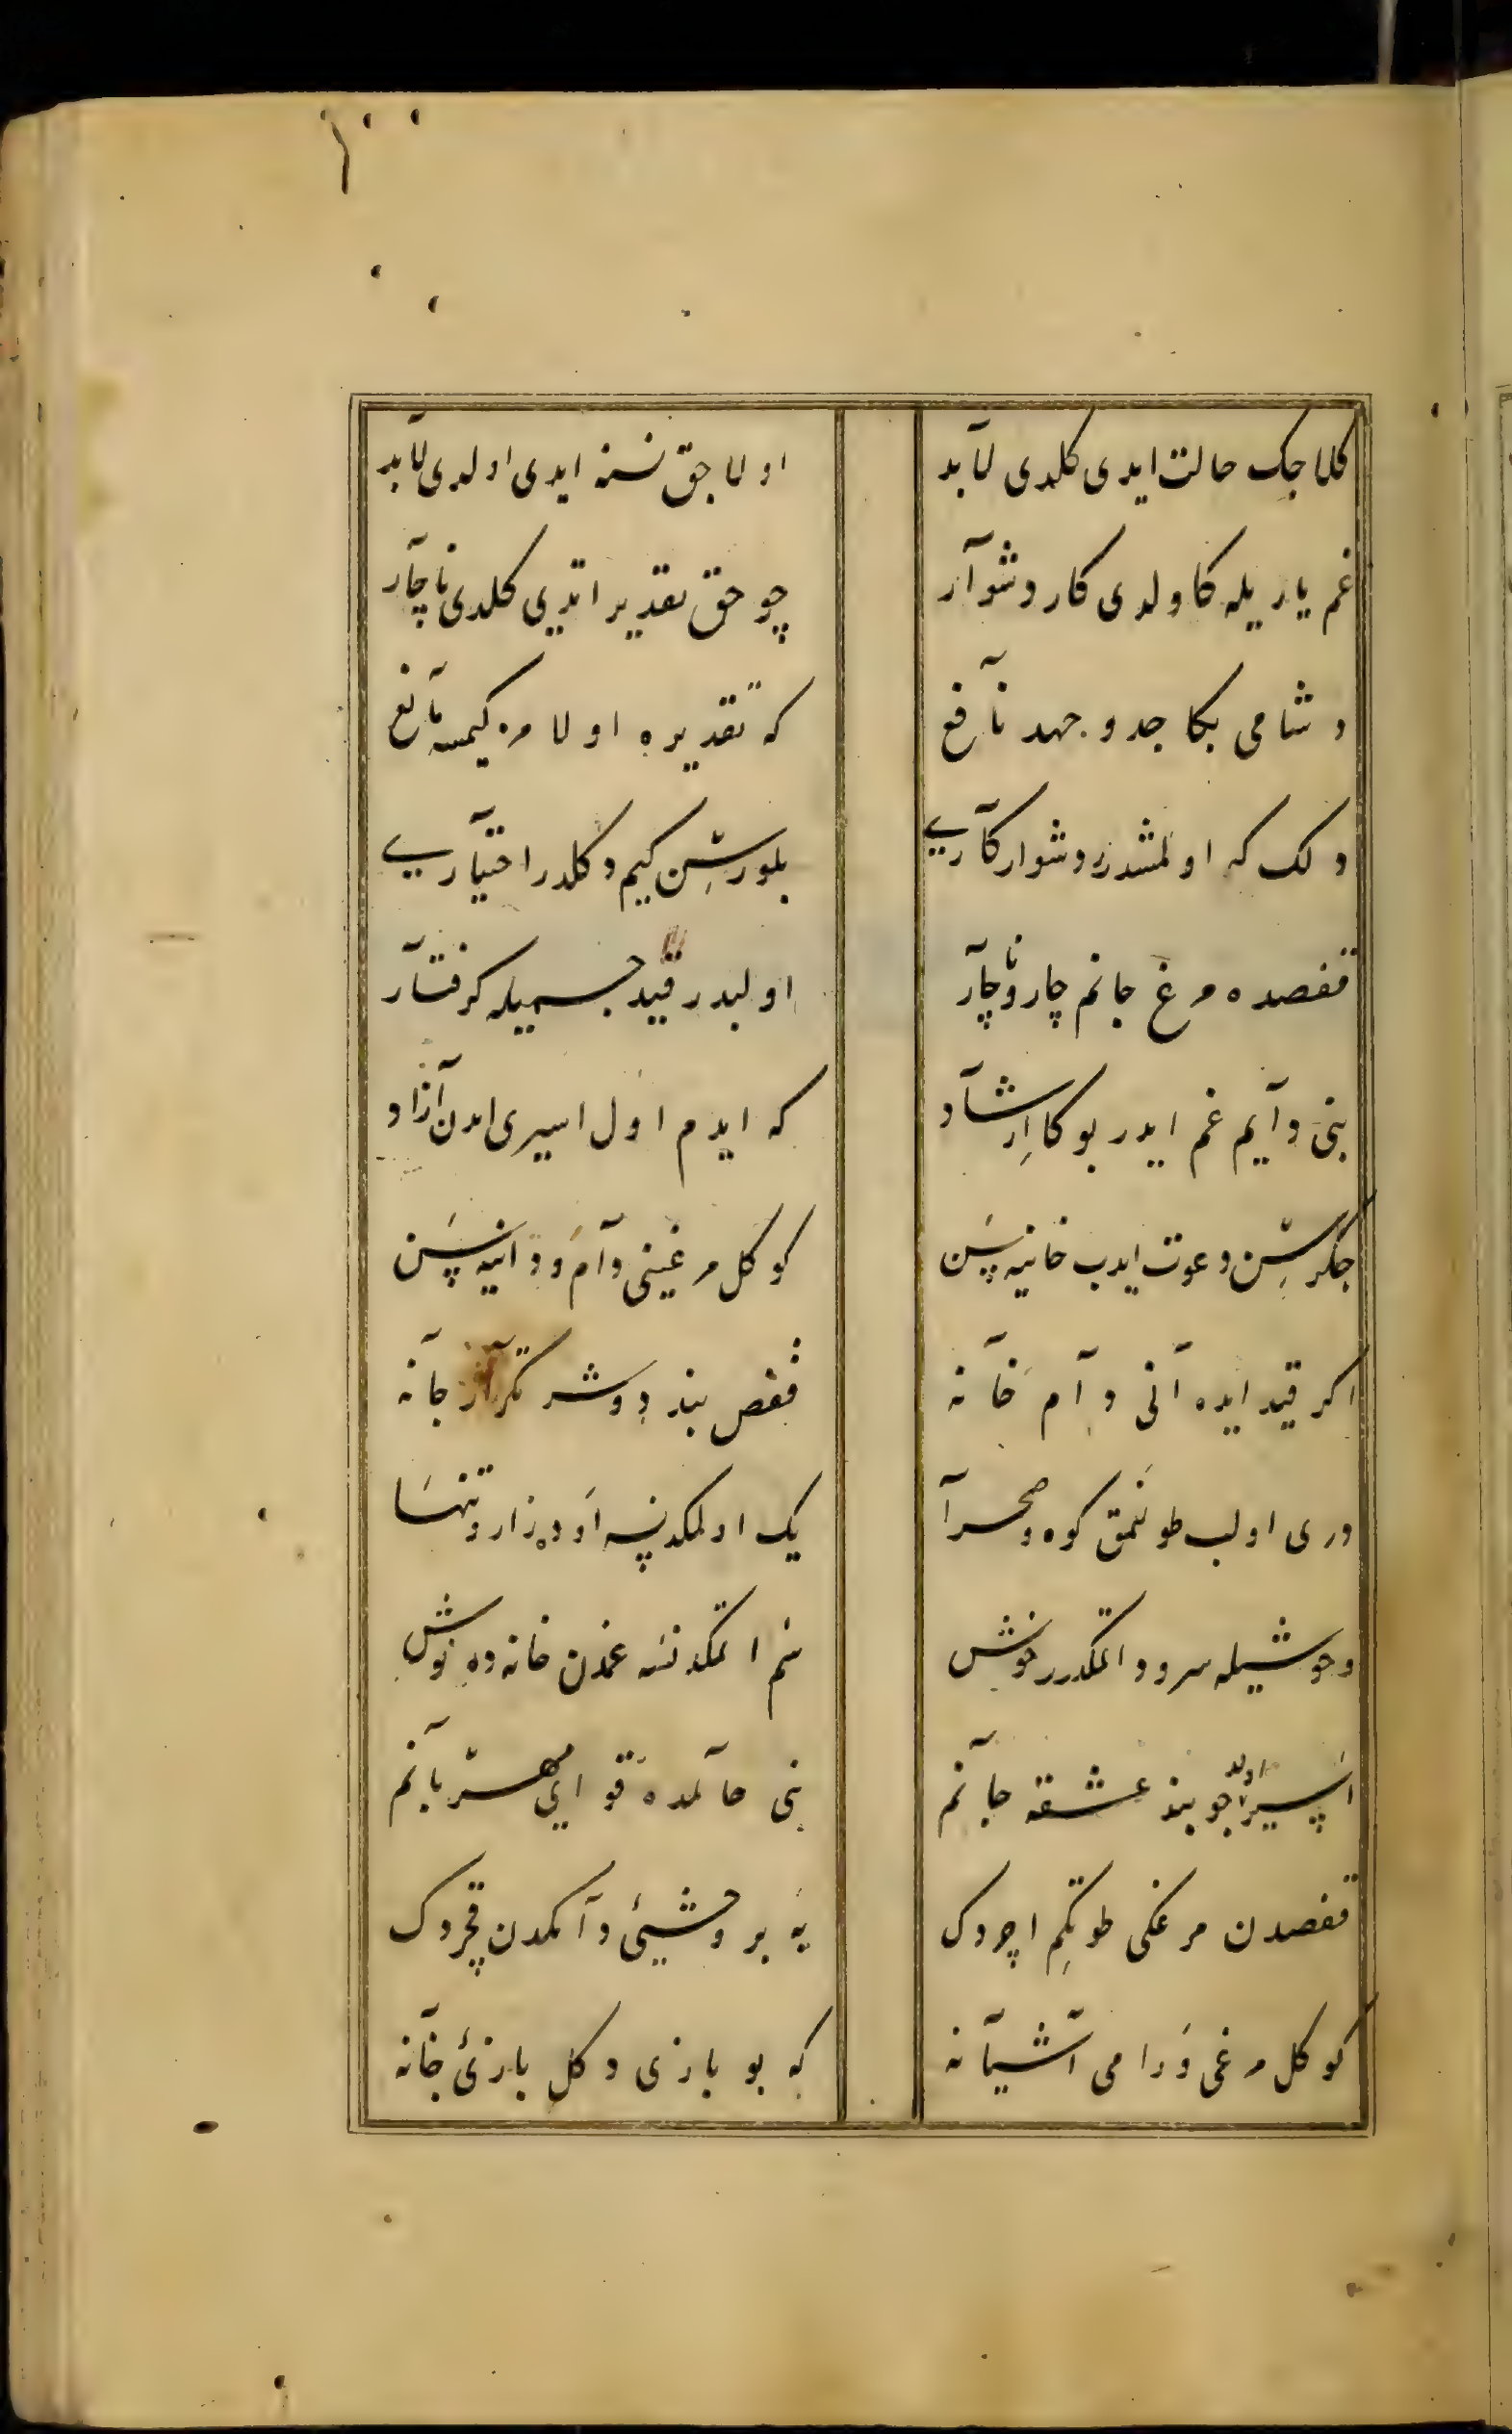 کلاجک حالت ایدی کلدی لآبد
اولاجق نسنه ایدی اولدی لآبد
غم یاریله کا ولدی کار دشوآر
چو حق تقدیر اتدیی کلدی ناچآر
دشامی بکا جد و جهد نآفع
که تقدیره اولا مز کیمسه مآنع
دلک که اولمشدر دشوار کآریے
بلورسِن کیم دکلدر اختیآریے
قفصده مرغ جانم چار وناچآر
اولبدر قید جسمیله کرفتآر
بنی دآیم غم ایدر بوکا اِرشآد
که ایدم اول اسیری بدن آزاد
جکرسِن دعوت ایدب خانیه سَن
کوکل مرغینی دآم ودانیه سَن
اکر قید ایده آنی دآم خآنه
قفص بند دوشر تکرآر جآنه
دری اولب طونمق کوه وصحرآ
یک اولمکدنسه اوده زار وتنهسَا
وحوشیله سرود اتمکدر خوش
نم اتمکدنسه غمدن خانه ده نوش
اسیر اولد جو بند عشقه جآنم
بنی حآلمده قو ای مهربآنم
قفصدن مرغکی طوتکِم اچردک
یه بر وحشیئی دآمکدن قچردک
کوکل مرغی وَرامی آشیآنه
که بو بازی دکل بازیٔ خآنه